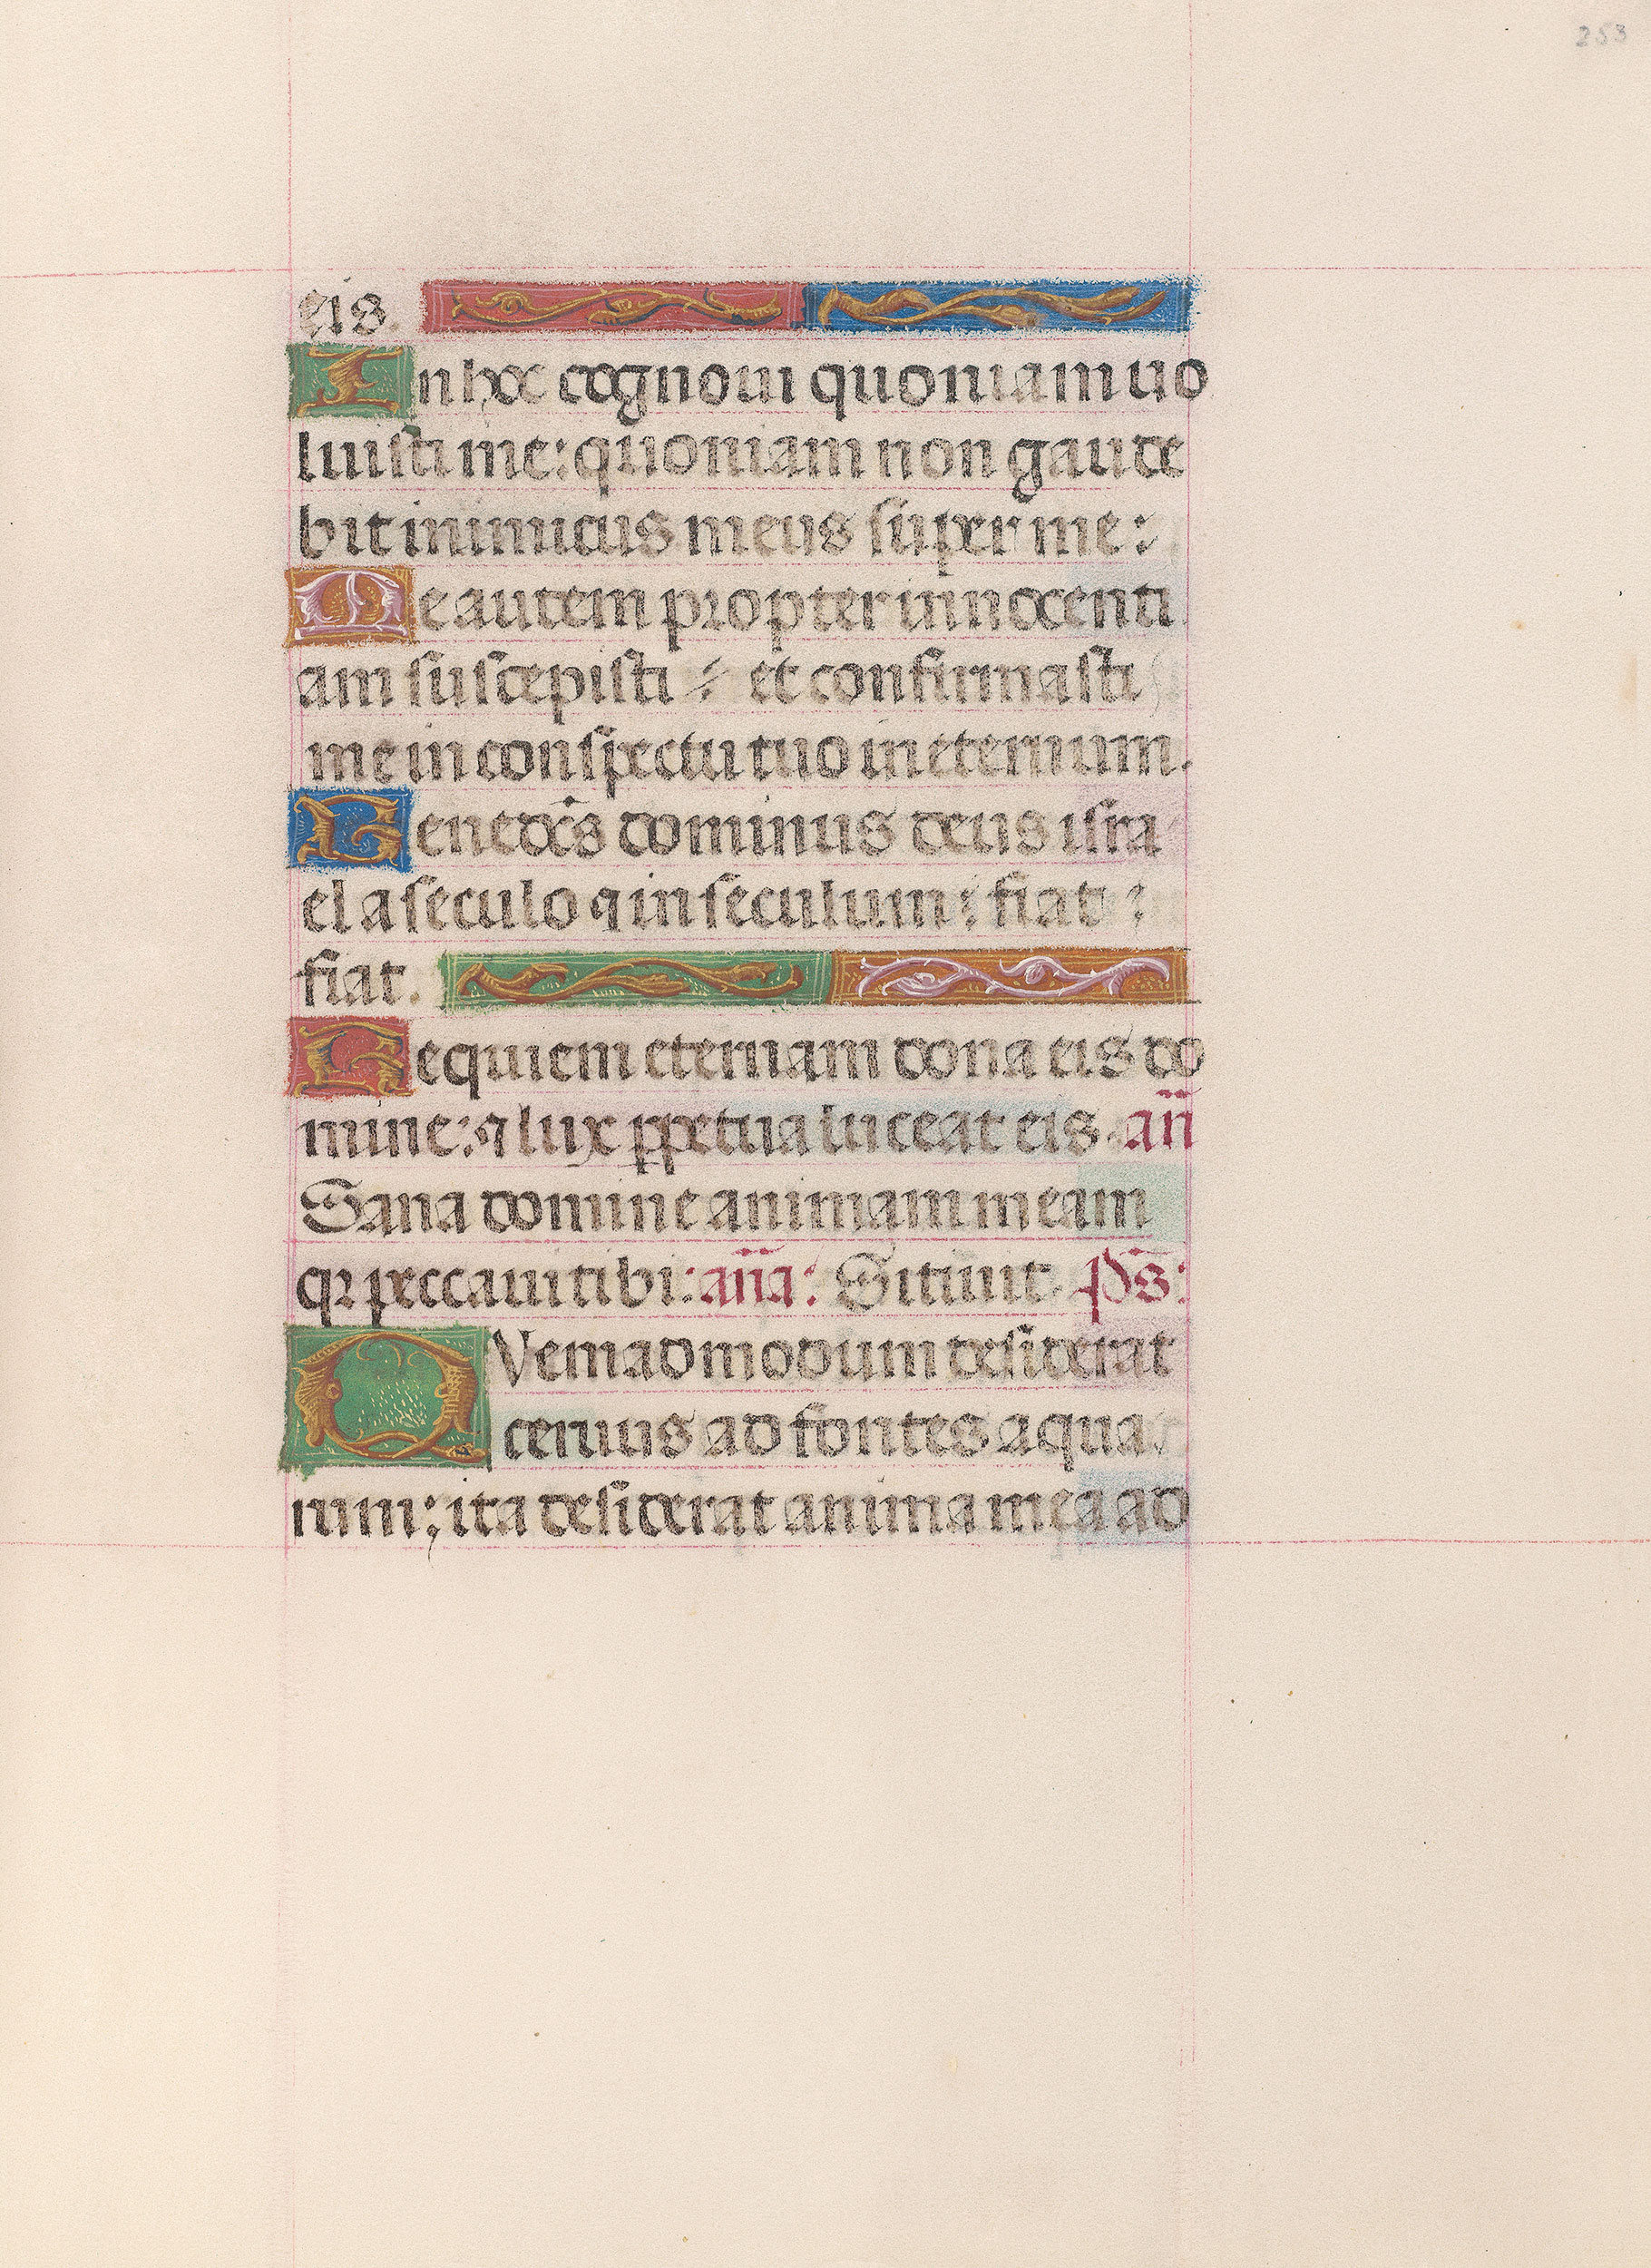 253
eis.
In hoc cognoui quoniam uo
luisti me: quoniam non gaude
bit inimicus meus super me:
Me autem propter innocenti
am suscepisti: et confirmasti
me in conspectu tuo in eternum.
Benedc̃s dominus deus isra
el a seculo ⁊ in seculum: fiat:
fiat.
Requiem eternam dona eis do
mine: ⁊ lux ꝑpetua luceat eis. an̄
Sana domine animam meam
qꝛ peccaui tibi: an̄a: Sitiuit. p̄s:
QVemadmodum desiderat
ceruus ad fontes aqua
rum: ita desiderat anima mea ad